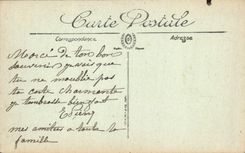 Carte Postale
Correspondance
Adresse
Morcé de ton bon
souvenir je vois que
tu ne moublie pas
ta carte charmante
je tembrasse bien fort
mes amitiés a toute ta
famille